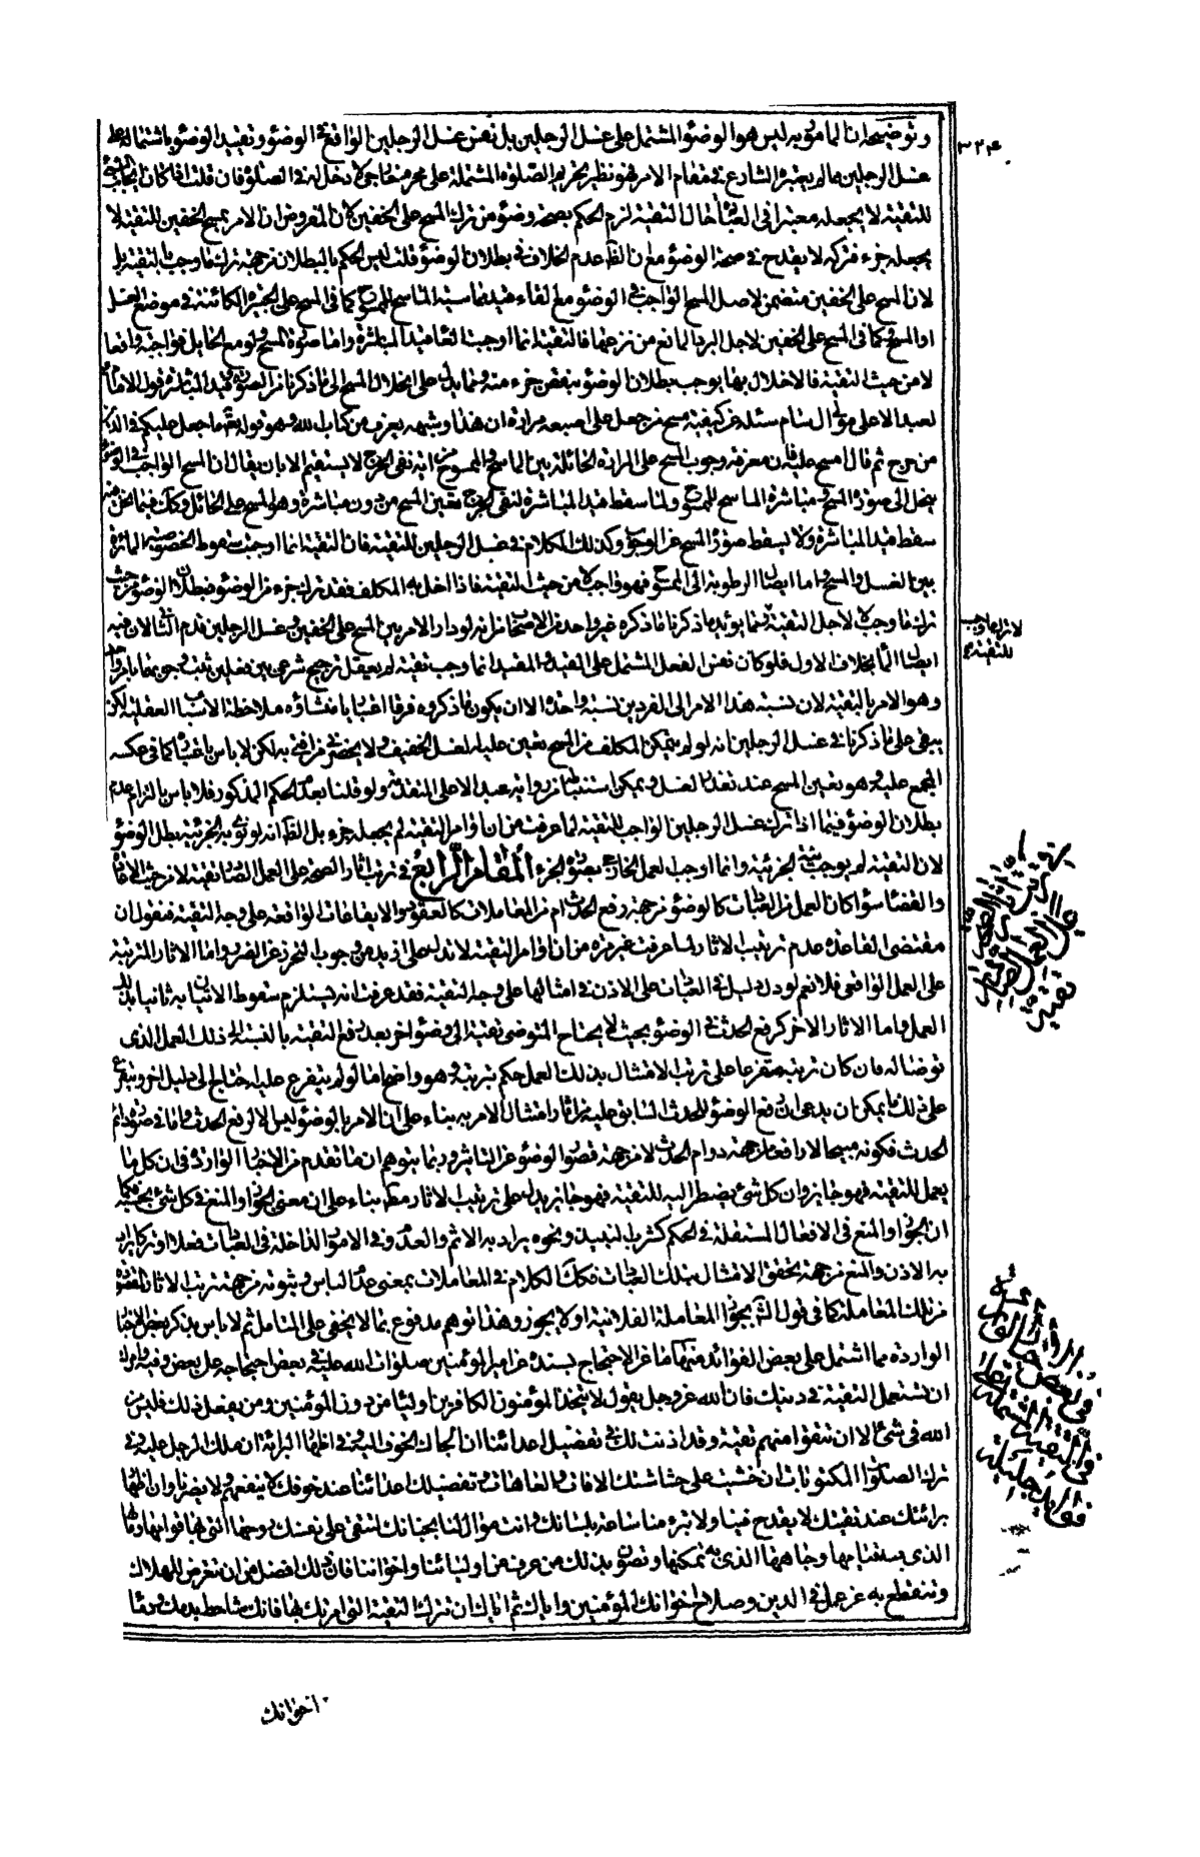 ٣٢٤
وتوضيحه ان المأمور به ليس هو الوضوء المشتمل على غسل الرجلين بل نفس غسل الرجلين الواقع في الوضوء وتقييد الوضوء باشتماله على
غسل الرجلين مما لم يعتبره الشارع في مقام الامر فهو نظير تحريم الصلوة المشتملة على محرم خارجي لا دخل له في الصلوة فان قلت اذا كان ايجاب الشئ
للتقية لا يجعله معتبرا في العبادة حال التقية لزم الحكم بصحة وضوء من ترك المسح على الخفين لان المفروض ان الامر بمسح الخفين للتقية لا
يجعله جزء فتركه لا يقدح في صحة الوضوء مع ان الظ عدم الخلاف في بطلان الوضوء قلت ليس الحكم بالبطلان من جهة ترك ما وجب بالتقية بل
لان المسح على الخفين متضمن لاصل المسح الواجب في الوضوء مع الغاء قيد مماسية الماسح للممسوح كما في المسح على الجبيرة الكائنة في موضع الغسل
او المسح وكما في المسح على الخفين لاجل البرد المانع من نزعها فالتقية انما اوجبت الغاء قيد المباشرة واما صورة المسح ولو مع الحايل فواجبة واقعا
لا من حيث التقية فالاخلال بها يوجب بطلان الوضوء بنقص جزء منه ومما يدل على انحلال المسح الى ما ذكرنا من الصورة وقيد المباشرة قول الامام
لعبد الاعلى مولى ال سام سئله عن كيفية مسح من جعل على اصبعه مرارة ان هذا وشبهه يعرف من كتاب الله وهو قوله تعالى ما جعل عليكم في الدين
من حرج ثم قال امسح عليه فان معرفة وجوب المسح على المرارة الحائلة بين الماسح والممسوح من اية نفى الحرج لا يستقيم الا بان يقال ان المسح الواجب في الوضوء
ينحل الى صورة المسح ومباشرة الماسح للممسوح ولما سقط قيد المباشرة لنفى الحرج تعين المسح من دون مباشرة وهو المسح على الحائل وكك فيما نحن فيه
سقط قيد المباشرة ولا يسقط صورة المسح عن الوجوب وكذلك الكلام في غسل الرجلين للتقية فان التقية انما اوجبت سقوط الخصوصية المائزة
بين الغسل والمسح واما ايصال الرطوبة الى الممسوح فهو واجب لا من حيث التقية فاذا اخل به المكلف فقد ترك جزء من الوضوء فبطلان الوضوء من حيث
ترك ما وجب لا لاجل التقية ومما يؤيد ما ذكرنا ما ذكره غير واحد من الاصحاب من انه لو دار الامر بين المسح على الخفين وغسل الرجلين قدم الثانى لان فيه
لا ترك ما وجب
للتقية
ايصال الماء بخلاف الاول فلو كان نفس الفعل المشتمل على القيد والمقيد انما وجب تقية لم يعقل ترجيح شرعى بين فعلين ثبت وجوبهما بامر واحد
وهو الامر بالتقية لان نسبة هذا الامر الى الفردين نسبة واحدة الا ان يكون ما ذكروه فرقا اعتباريا منشاؤه ملاحظة الاسباب العقلية لكن
يبقى على ما ذكرنا في غسل الرجلين انه لو لم يتمكن المكلف من المسح تعين عليه الغسل الخفيف ولا يحضرنى من افتى به لكن لا باس باعتباره كما في عكسه
المجمع عليه وهو تعين المسح عند تعذر الغسل ويمكن استنباطه من رواية عبد الاعلى المتقدمة ولو قلنا بعدم الحكم المذكور فلا باس بالتزام عدم
بطلان الوضوء فيما اذا ترك غسل الرجلين الواجب للتقية لما عرفت من ان اوامر التقية لم يجعله جزء بل الظ انه لو نوى به الجزئية بطل الوضوء
لان التقية لم يوجب نية الجزئية وانما اوجب العمل الخارجى بصورة الجزء المقام الرابع في ترتب اثار الصحة على العمل الصادر تقية لا من حيث الاعادة
والقضاء سواء كان العمل من العبادات كالوضوء من جهة رفع الحدث ام من المعاملات كالعقود والايقاعات الواقعة على وجه التقية فنقول ان
مقتضى القاعدة عدم ترتب الاثار لما عرفت غير مرة من ان اوامر التقية لا تدل على ازيد من وجوب التحرز عن الضرر واما الاثار المترتبة
على العمل الواقعى فلا نعم لو دل دليل في العبادات على الاذن في امتثالها على وجه التقية فقد عرفت انه يستلزم سقوط الاتيان به ثانيا بذلك
العمل واما الاثار الاخر كرفع الحدث في الوضوء بحيث لا يحتاج المتوضى تقية الى وضوء اخر بعد رفع التقية بالنسبة الى ذلك العمل الذى
توضا له فان كان ترتبه متفرعا على ترتب الامتثال بذلك العمل حكم بترتبه وهو واضح اما لو لم يتفرع عليه احتاج الى دليل اخر ويتفرع
على ذلك ما يمكن ان يدعى ان رفع الوضوء للحدث السابق عليه من اثار امتثال الامر به بناء على ان الامر بالوضوء ليس الا لرفع الحدث واما في صورة دائم
الحدث فكونه مبيحا لا رافعا من جهة دوام الحدث لا من جهة قصور الوضوء عن التاثير وربما يتوهم ان ما تقدم من الاخبار الواردة في ان كل ما
يعمل للتقية فهو جايز وان كل شئ يضطر اليه للتقية فهو جايز يدل على ترتب الاثار مط بناء على ان معنى الجواز والمنع في كل شئ بحسبه فكما
ان الجواز والمنع في الافعال المستقلة في الحكم كشرب النبيذ ونحوه يراد به الاثم والعدم وفي الامور الداخلة في العبادات فعلا او تركا يراد
به الاذن والمنع من جهة تحقق الامتثال بتلك العبادات فكك الكلام في المعاملات بمعنى عدم الباس وثبوته من جهة ترتب الاثار المقصودة
من تلك المعاملة كما في قول الشارع يجوز المعاملة الفلانية او لا يجوز وهذا توهم مدفوع بما لا يخفى على المتامل ثم لا باس بذكر بعض الاخبار
الواردة مما اشتمل على بعض الفوائد منها ما عن الاحتجاج بسنده عن امير المؤمنين صلوات الله عليه في بعض احتجاجه على بعض وفيه وامرك
ان تستعمل التقية في دينك فان الله عز وجل يقول لا يتخذ المؤمنون الكافرين اولياء من دون المؤمنين ومن يفعل ذلك فليس من
الله في شئ الا ان تتقوا منهم تقية وقد اذنت لك في تفضيل اعدائنا ان الجاك الخوف اليه وفي اظهار البرائة ان حملك الوجل عليه وفي
ترك الصلوات المكتوبات ان خشيت على حشاشتك الافات والعاهات وتفضيلك اعدائنا عند خوفك لا ينفعهم ولا يضرنا وان اظهار
برائتك عند تقيتك لا يقدح فينا ولا تبرء منا ساعة بلسانك وانت موال لنا بجنانك لتتقى على نفسك روحها التى بها قوامها ومالها
الذى به قيامها وجاهها الذى به تمكنها وتصون بذلك من عرف من اوليائنا واخواننا فان ذلك افضل من ان تتعرض للهلاك
وتنقطع به عن عمل في الدين وصلاح اخوانك المؤمنين واياك ثم اياك ان تترك التقية التى امرتك بها فانك شاحط بدمك ودماء
اخوانك